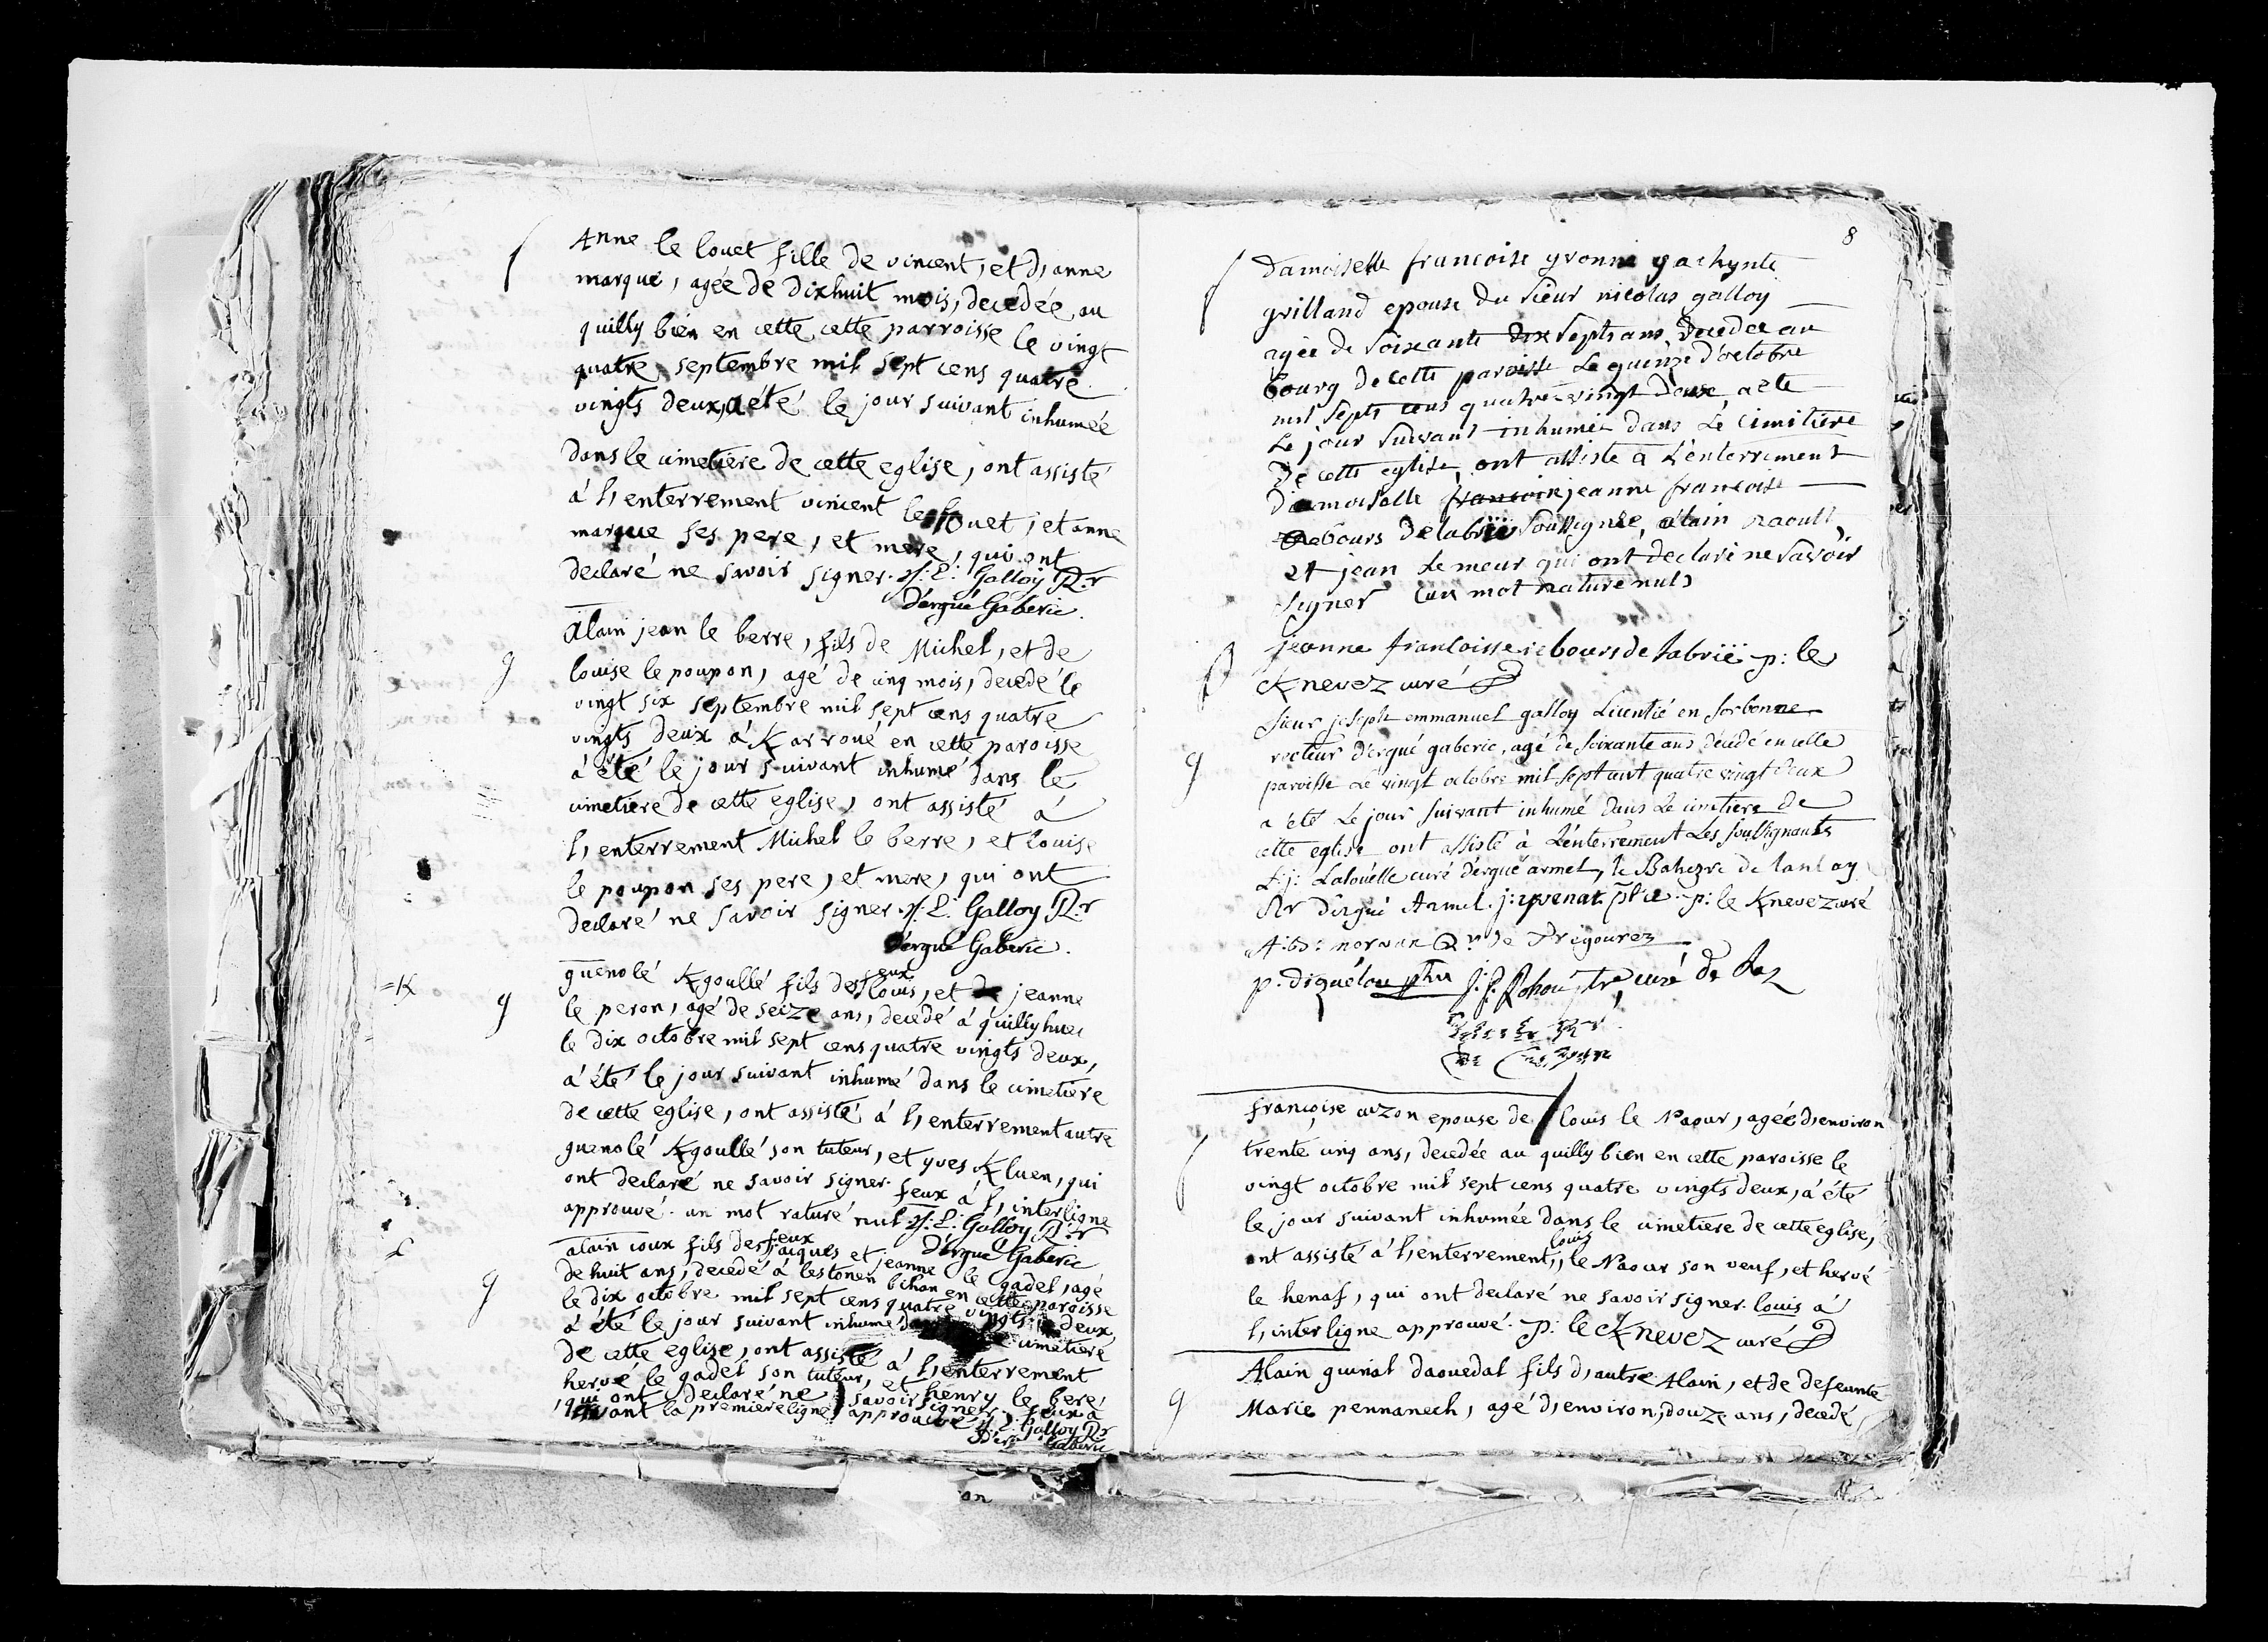 Anne le louet fille de vincent, et d, anne
marque, agée de dixhuit mois, decedée au
quilly bien en cette cette parroisse le vingt
quatre septembre mil sept cens quatre
vingts deux, a été le jour suivant inhumée
dans le cimetiere de cette eglise, ont assisté
á l, enterrement vincent le louet, et anne
marque ses pere, et mere, qui ont
declaré ne savoir signer. j: E: Galloy R.r
d'ergué Gaberic.
Alain jean le berre, fils de Michel, et de
louise le poupon, agé de cinq mois, decedé le
vingt six septembre mil sept cens quatre
vingts deux á Karroué en cette paroisse
á été le jour suivant inhumé dans le
cimetiere de cette eglise, ont assisté á
l, enterrement Michel le berre, et louise
le poupon ses pere, et mere, qui ont
declaré ne savoir signer. j: E. Galloy R.r
d'ergué Gaberic.
guenolé Kgoullé fils des feux louis, et de jeanne
le peron, agé de seize ans, decedé á quillyhuec
le dix octobre mil sept cens quatre vingts deux,
á été le jour suivant inhumé dans le cimetiere
de cette eglise, ont assisté á l, enterrement autre
guenolé Kgoullé son tuteur, et yves Kluen, qui
ont declaré ne savoir signer. feux á l, interligne
approuvé. un mot raturé nul j: E: Galloy R.r
d'ergué Gaberic
alain coux fils des feux jacques et jeanne le gadel, agé
de huit ans, decedé á lestonen bihan en cette paroisse
le dix octobre mil sept cens quatre vingts deux,
á été le jour suivant inhumé cimetiere
de cette eglise, ont assisté á l, enterrement
hervé le gadel son tuteur, et henry le bere,
qui ont declaré ne savoir signer. feux á
la premiere ligne approuvé j. E. Galloy R.r
Gaberic
8
Damoiselle francoise yvonne yachynte
grilland epouse du sieur nicolas galloy
agée de soixante dix septs ans decedee au
bourg de cette paroisse le quinze d'octobre
mil septs cens quatre-vingt deux, a ete
Le jour suivant inhumée dans Le Cimitiere
De cette eglise, ont assiste a L'enterrement
damoiselle francoise jeanne francoise
rebours de labrië soussignée, alain raoult,
et jean Le meur qui ont declaré ne savoir
signer un mot rature nul
jeanne francoisse rebours de labrië p: le
Knevez curé
Sieur joseph emmanuel galloy Licentié en sorbonne
recteur d'ergué gaberic, agé de soixante ans décédé en cette
paroisse Le vingt octobre mil sept cent quatre vingt deux
a été Le jour suivant inhumé dans Le cimetiere de
cette eglise ont assisté à L'enterrement Les soussignants
L: j: Lalouelle curé d'ergué armel, le Bahezre de lanlay
Rr d'ergué Armel. p: le Knevez curé
norvan Rr de Trigourez
p. diquélou curé de Laz
françoise cuzon epouse de louis le Naour, agée d, environ
trente cinq ans, decedée au quilly bien en cette paroisse le
vingt octobre mil sept cens quatre vingts deux, á été
le jour suivant inhumée dans le cimetiere de cette eglise,
ont assisté á l, enterrement, louis le Naour son veuf, et hervé
le henaf, qui ont declaré ne savoir signer. louis á
l, interligne approuvé. p: le Knevez curé
Alain guinal daouedal fils d, autre Alain, et de defeunte
Marie pennanech, agé d, environ, douze ans, decedé,